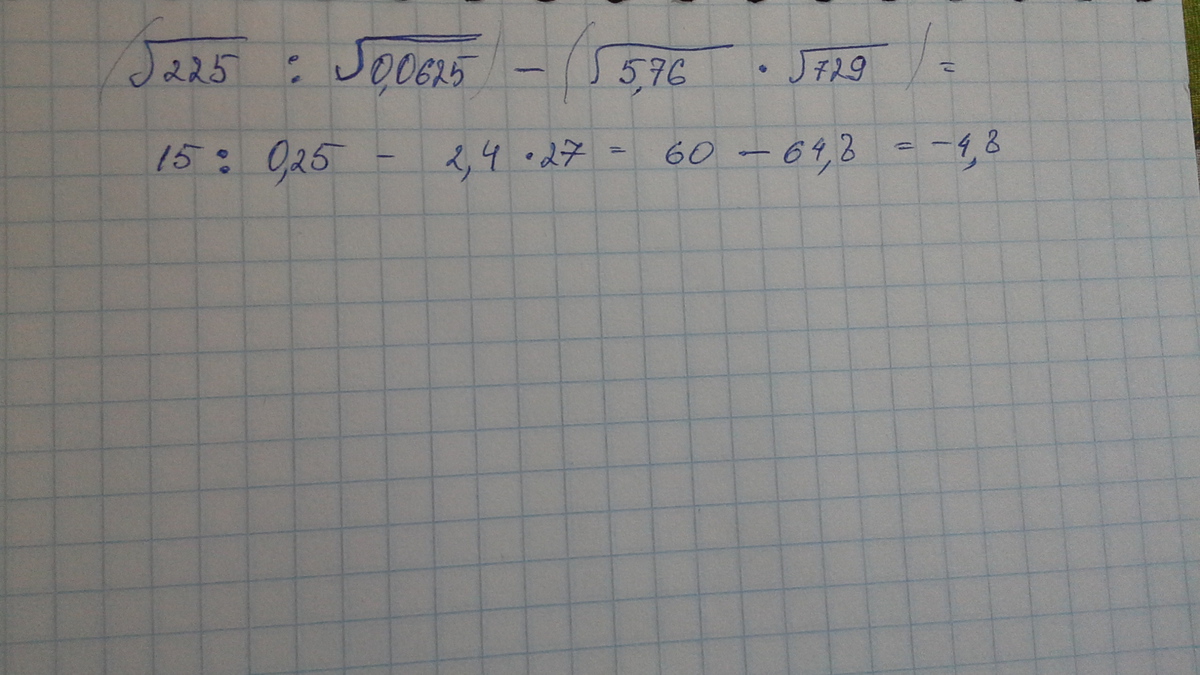 (√225 : √0,0625) − (√5,76 · √729) =
15 : 0,25 − 2,4 · 27 = 60 − 64,8 = −4,8